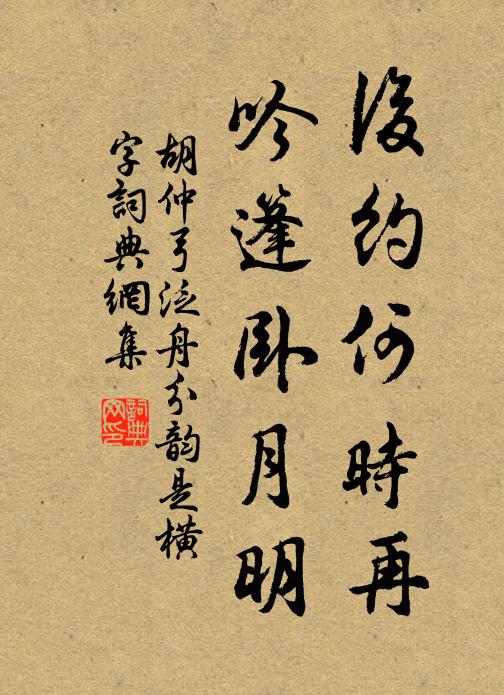 後約何時再
吟篷卧月明
胡仲弓泛舟分韵是橫
字詞典網集
詞典网印